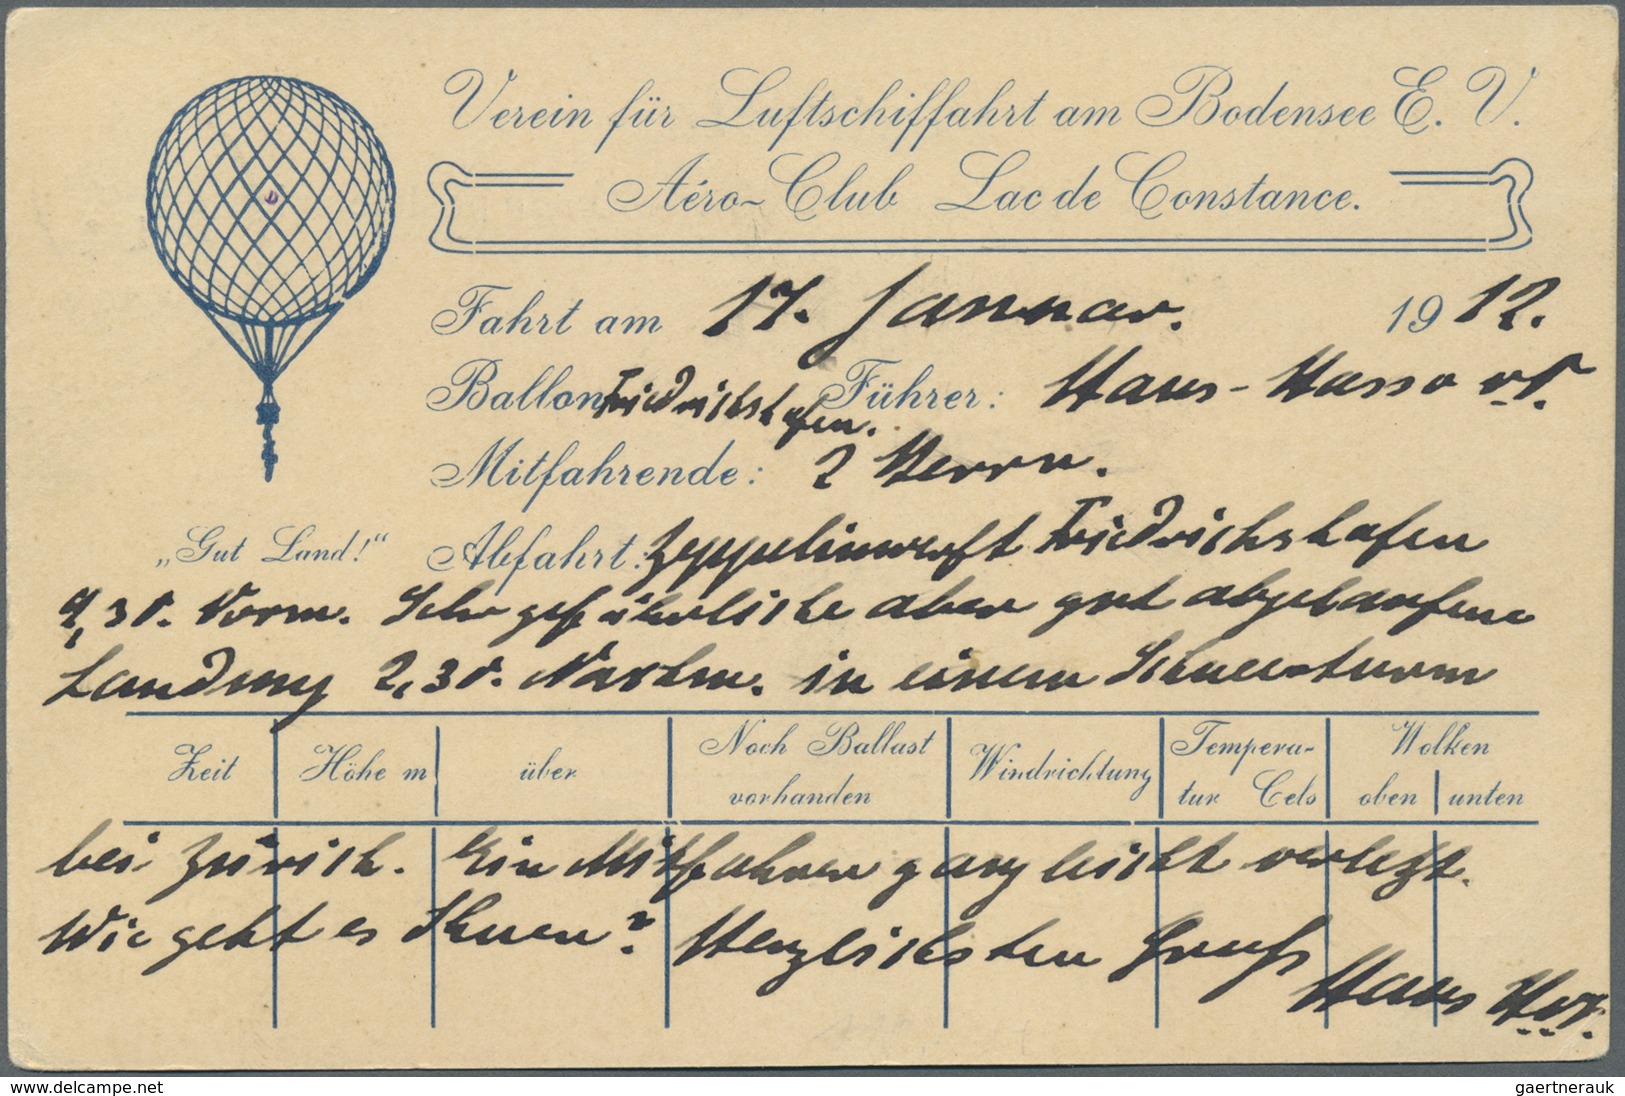 Verein für Luftschiffahrt am Bodensee E. V.
Aéro-Club Lac de Constance.
Fahrt am 17. Januar. 1912.
Ballon Friedrichshafen. Führer: Hans-Hasso v.
Mitfahrende: 2 Herrn.
„Gut Land!“ Abfahrt: Zeppelinwerft Friedrichshafen
9,30. Vorm. Sehr gefährliche aber gut abgelaufene
Landung 2,30. Nachm. in einem Schneesturm
Zeit Höhe m über Noch Ballast vorhanden Windrichtung Tempera-tur Cels Wolken oben unten
bei Zürich. Ein Mitfahrer ganz leicht verletzt.
Wie geht es Ihnen? Herzlichsten Gruß
Hans H.v.
www.delcampe.net
gaertnerauk